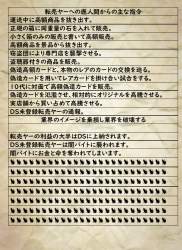 転売ヤーへの亜人間からの主な指令
運送中に高額商品を抜き出す。
正規の箱に同重量の石を入れて販売。
小さく縮めみの販売と書いて高額販売。
高額商品を景品から抜き出す。
窃盗団により専門店を襲撃させる。
盗聴器付きの商品を販売。
偽造高額カードと、本物のレアのカードの交換を迫る。
偽造カードを用いてレアカードを掛け合い試合をする。
10代に対面で高額偽造カードを販売。
偽造カードを氾濫させ、相対的にオリジナルを高騰させる。
実店舗から買い占めて高騰させる。
DS未登録転売ヤーの通報。
業界のイメージを棄損し業界を破壊する
転売ヤーの利益の大半はDSに上納されます。
DS未登録転売ヤーは闇バイトに襲われます。
闇バイトにお金と命を奪われてしまいます。